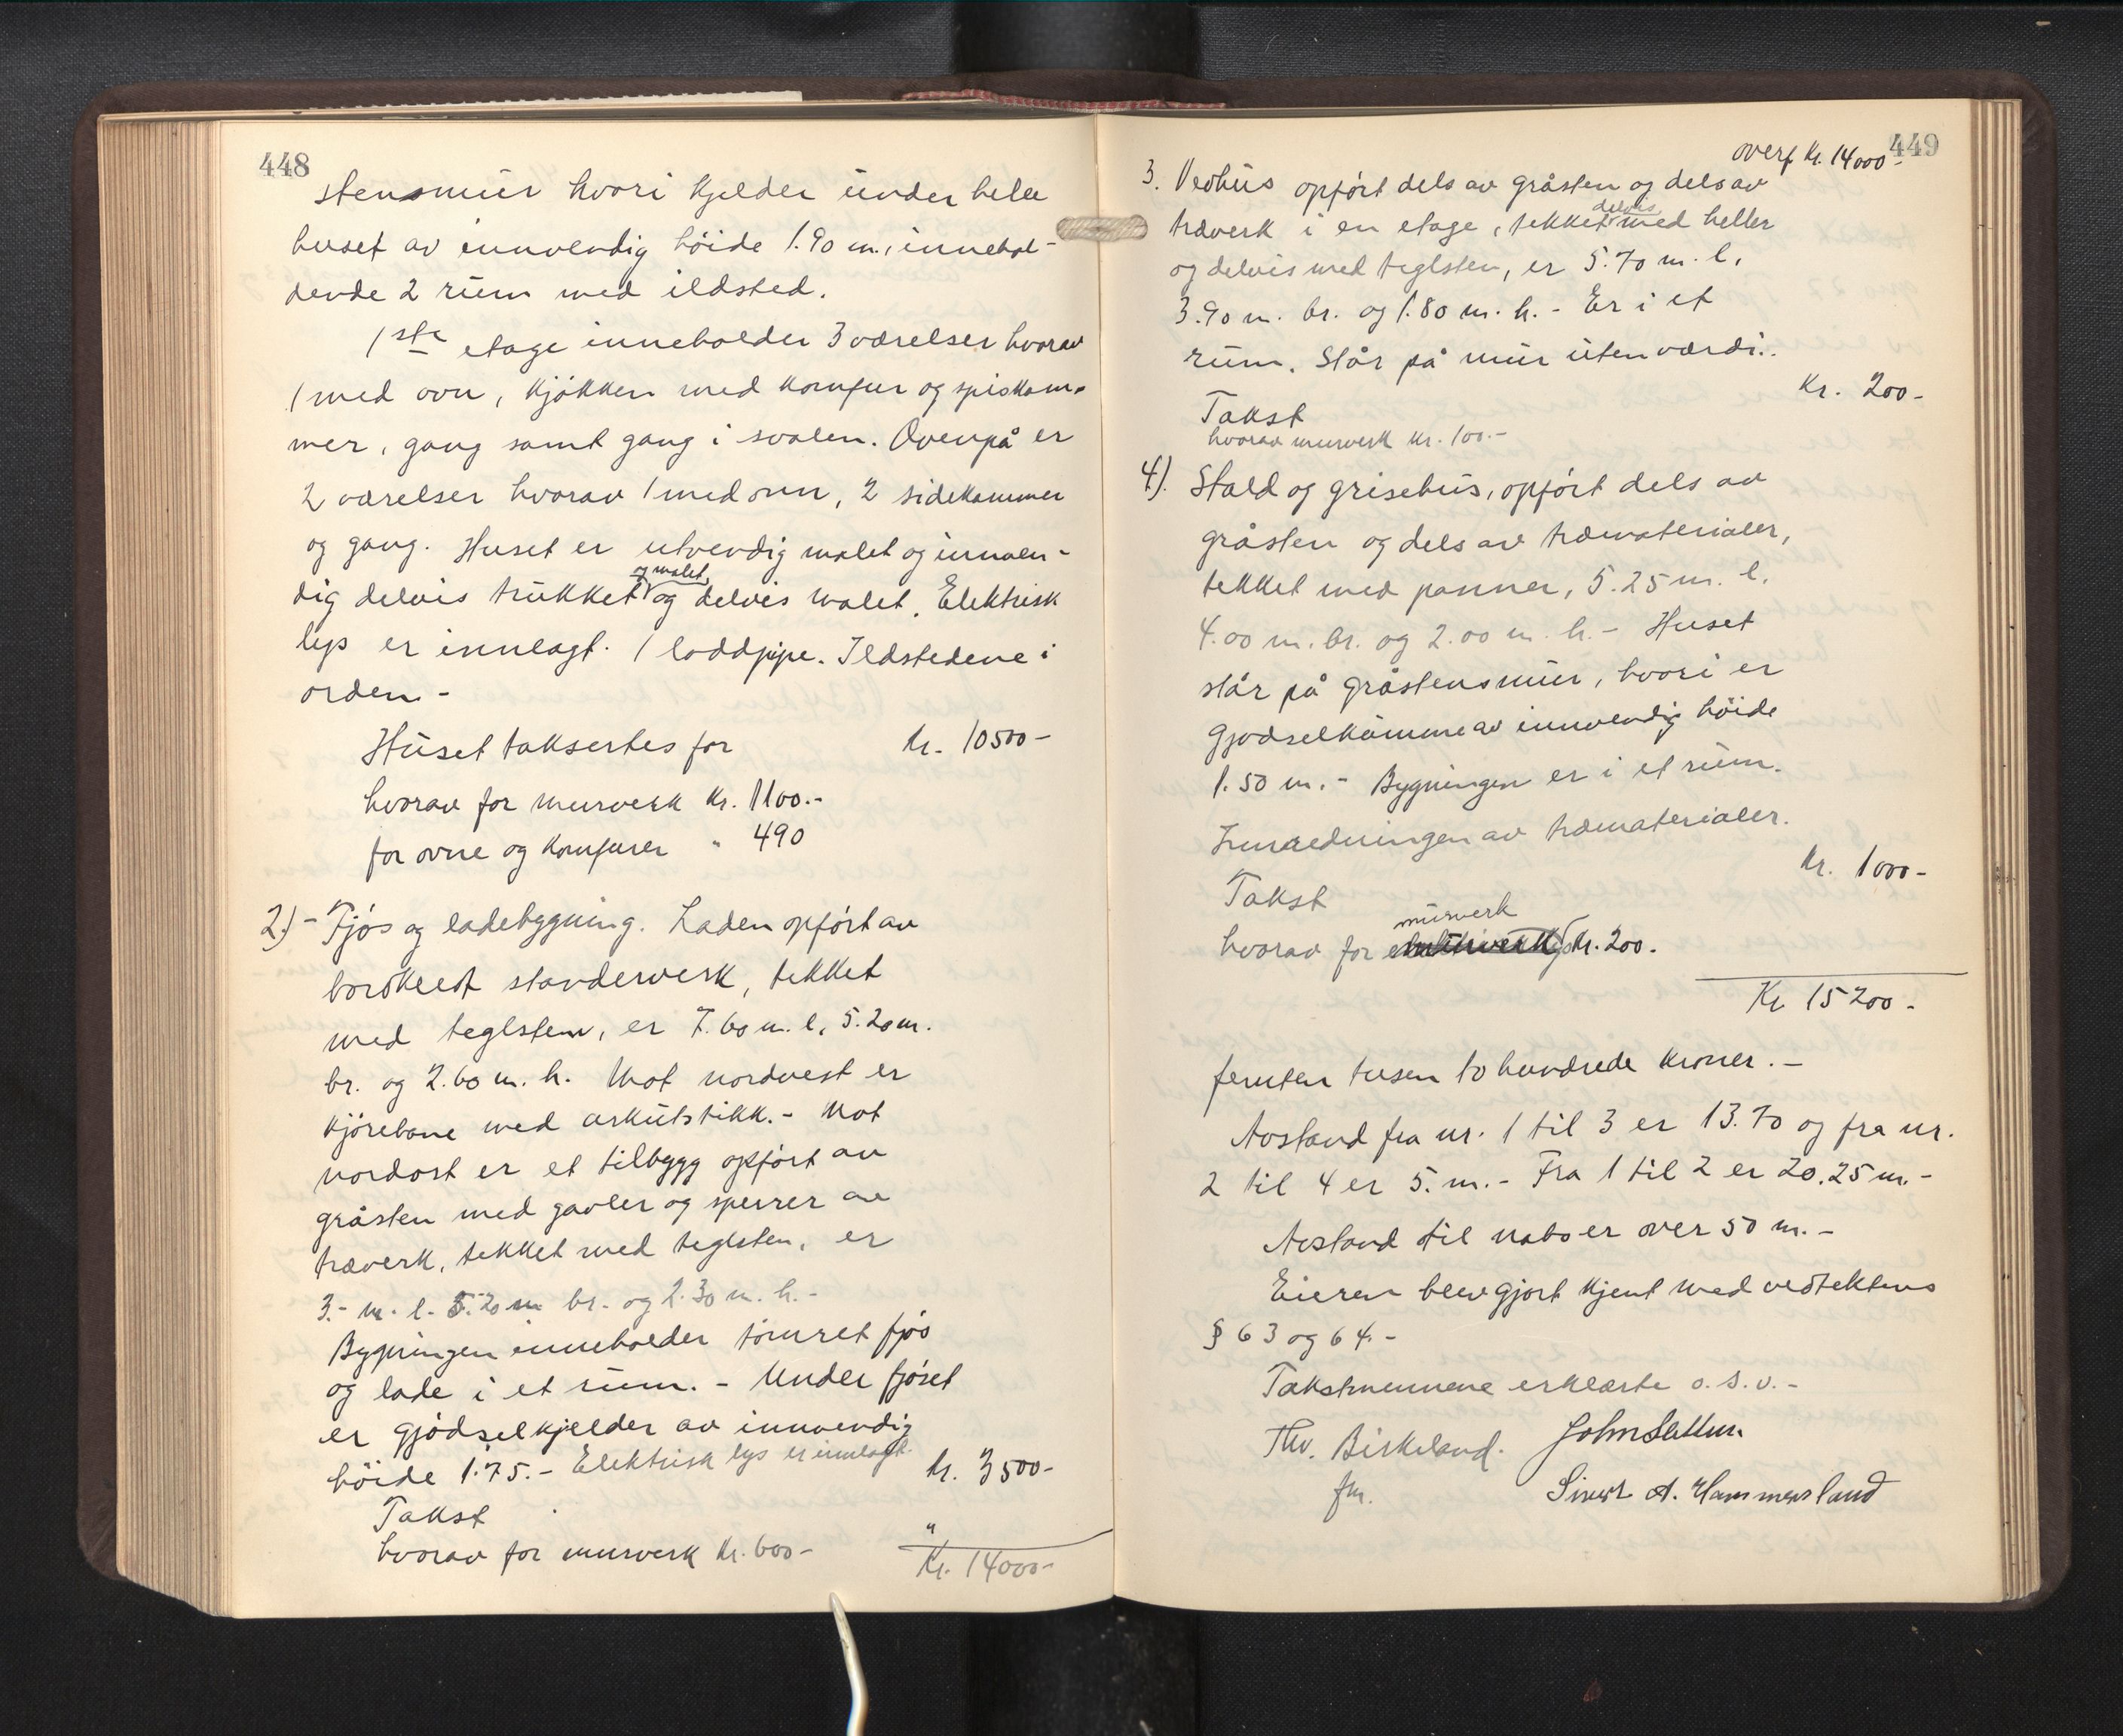 448
stensmur hvori kjelder under hele
huset av innvendig höide 1.90 m., innehol-
dende 2 rum med ildsted.
1ste etage inneholder 3 værelser hvorav
1 med ovn, kjökken med komfur og spiskam-
mer, gang samt gang i svalen. Ovenpå er
2 værelser hvorav 1 med ovn, 2 sidekammer
og gang. Huset er utvendig malet og innven-
og malet,
dig delvis trukket og delvis malet. Elektrisk
lys er innlagt. 1 loddpipe. Ildstedene i
orden -
Huset taksertes for Kr. 10500-
hvorav for murverk Kr. 1100.-
for ovne og komfurer " 490
2.) - Fjös og ladebygning. Laden opfört av
bordkledt standerverk, tekket
med teglsten, er 7.60 m. l, 5.20 m.
br. og 2.60 m. h. Mot nordvest er
kjörebane med arkutstikk. - Mot
nordost er et tilbygg opfört av
gråsten med gavler og sperrer av
træverk, tekket med teglsten, er
3.- m. l. 5.20 m br. og 2.30 m. h. -
Bygningen inneholder tömret fjös
og lade i et rum. - Under fjöset
er gjödselkjelder av innvendig
höide 1.75. - Elektrisk lys er innlagt. Kr. 3500-
Takst
hvorav for murverk Kr. 600- "
Kr. 14000-
449
overf Kr. 14000-
3. Vedhus opfört dels av gråsten og dels av
delvis
træverk i en etage, tekket med heller
og delvis med teglsten, er 5.70 m. l,
3.90 m. br. og 1.80 m. h. - Er i et
rum. Står på mur uten værdi.
Kr. 200-
Takst
hvorav murverk Kr. 100.-
4). Stald og grisehus, opfört dels av
gråsten og dels av træmaterialer,
tekket med panner, 5.25 m. l.
4.00 m. br. og 2.00 m. h. - Huset
står på gråstensmur, hvori er
gjødselkumme av innvendig höide
1.50 m. - Bygningen er i et rum.
Innredningen av træmaterialer.
Kr. 1000-
Takst
murverk
hvorav for Kr. 200.
Kr 15200-
femten tusen to hundrede kroner. -
Avstand fra nr. 1 til 3 er 13.70 og fra nr.
2 til 4 er 5. m. - Fra 1 til 2 er 20.25 m. -
Avstand til naboer over 50 m. -
Eieren blev gjort kjent med vedtektens
§ 63 og 64. -
Takstmennene erklærte o. s. v. -
Thv. Birkeland. John Sletten.
fm. Sivert A. Hammersland